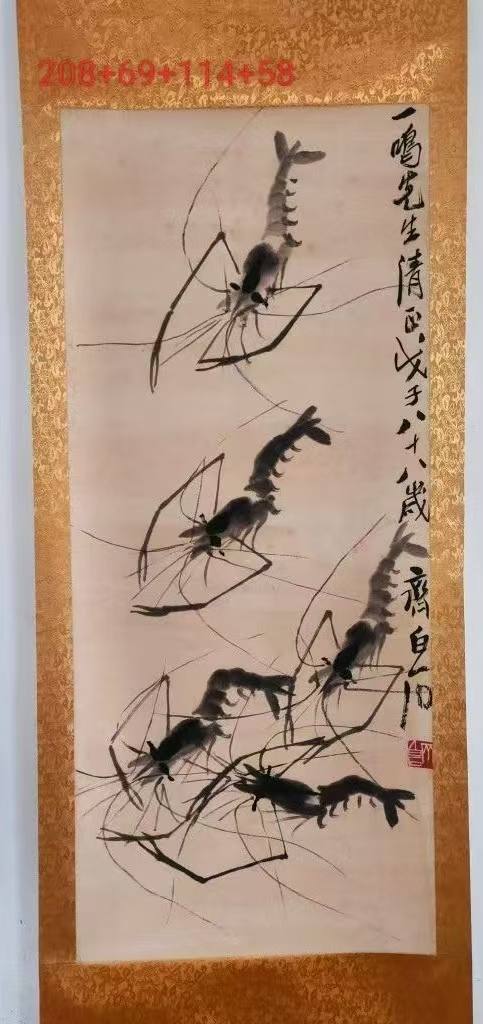 208+69+114+58
一鳴先生清正戊子八十八歲
齊白石